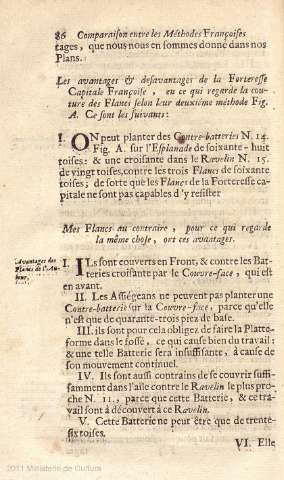 86 Comparaison entre les Méthodes Françoises
tages, que nous nous en sommes donné dans nos
Plans.
Les avantages & desavantages de la Forteresse
Capitale Françoise, en ce qui regarde la cou-
ture des Flancs selon leur deuxiéme méthode Fig.
A. Ce sont les suivants:
I. ON peut planter des Contre-batteries N. 14.
Fig. A. sur l'Esplanade de soixante-huit
toises: & une croisante dans le Ravelin N. 15.
de vingt toises, contre les trois Flancs de soixante
toises; de sorte que les Flancs de la Forteresse ca-
pitale ne sont pas capables d'y resister
Mes Flancs au contraire, pour ce qui regarde
la même chose, ont ces avantages.
Avantages des
Flancs de l'Au-
teur.
I. ILs sont couverts en Front, & contre les Bat-
teries croisante par le Couvre-face, qui est
en avant.
II. Les Assiégeans ne peuvent pas planter une
Contre-batterie sur la Couvre-face, parce qu'elle
n'est que de quarante-trois pea de base.
III. ils sont pour cela obligez de faire la Platte-
forme dans le fossé, ce qui cause bien du travail:
& une telle Batterie sera insuffisante, à cause de
son mouvement continuel.
IV. Ils sont aussi contrains de se couvrir suffi-
samment dans l'aîle contre le Ravelin le plus pro-
che N. 11., parce que cette Batterie, & ce tra-
vail sont à découvert à ce Ravelin.
V. Cette Batterie ne peut être que de trente-
six toises.
VI. Elle
2011 Ministerio de Cultura